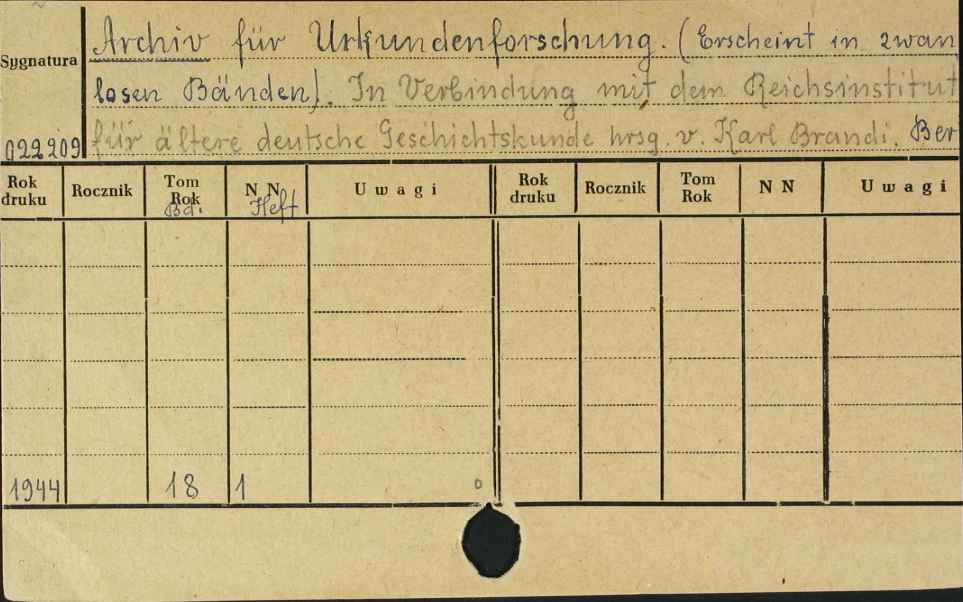 Sygnatura
022209
Archiv für Urkundenforschung. (Erscheint in zwan
losen Bänden). In Verbindung mit dem Reichsinstitut
für ältere deutsche Geschichtskunde hrsg. v. Karl Brandi. Ber
Rok druku Rocznik Tom Rok Bd. N N Heft Uwagi Rok druku Rocznik Tom Rok N N Uwagi
1944 18 1